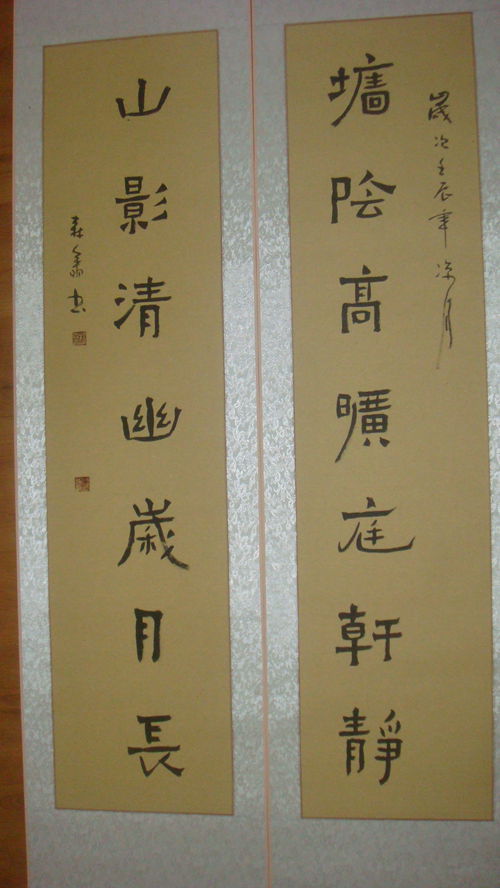 歲次壬辰年凉月
墻陰高曠庭軒靜
山影清幽歲月長